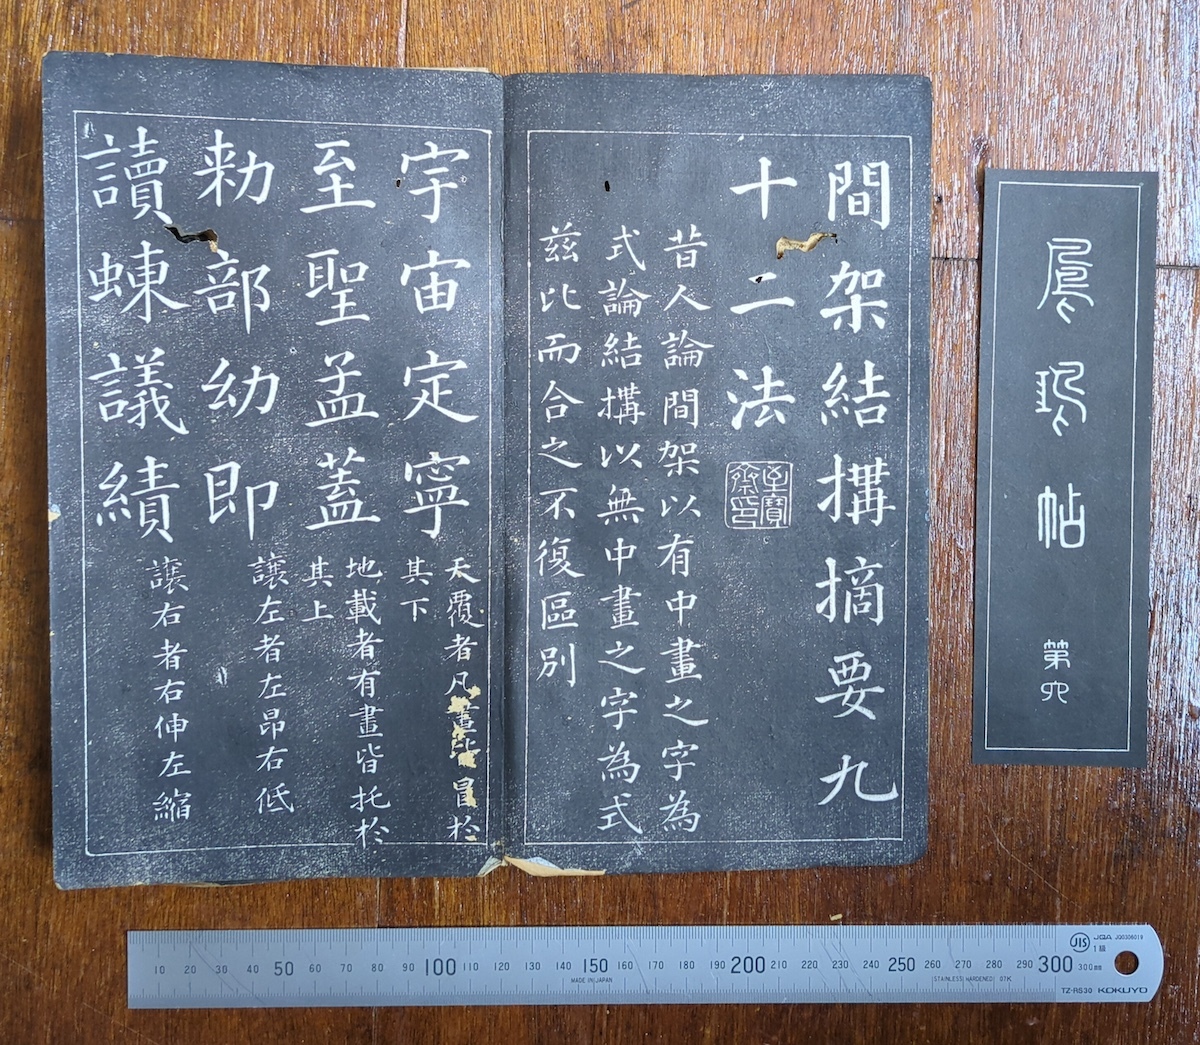 間架結搆摘要九
十二法
至寶
齋印
昔人論間架以有中畫之字為
式論結搆以無中畫之字為式
茲比而合之不復區別
宇宙定寧
天覆者凡畫皆冒於
其下
至聖孟蓋
地載者有畫皆托於
其上
勑部幼即
讓左者左昂右低
讀蝀議績
讓右者右伸左縮
帖
第六
10 20 30 40 50 60 70 80 90 100 110 120 130 140 150 160 170 180 190 200 210 220 230 240 250 260 270 280 290 300 300mm
MADE IN JAPAN
STAINLESS HARDENED 07K
JIS JQA JQ0306019
1級
TZ-RS30 KOKUYO